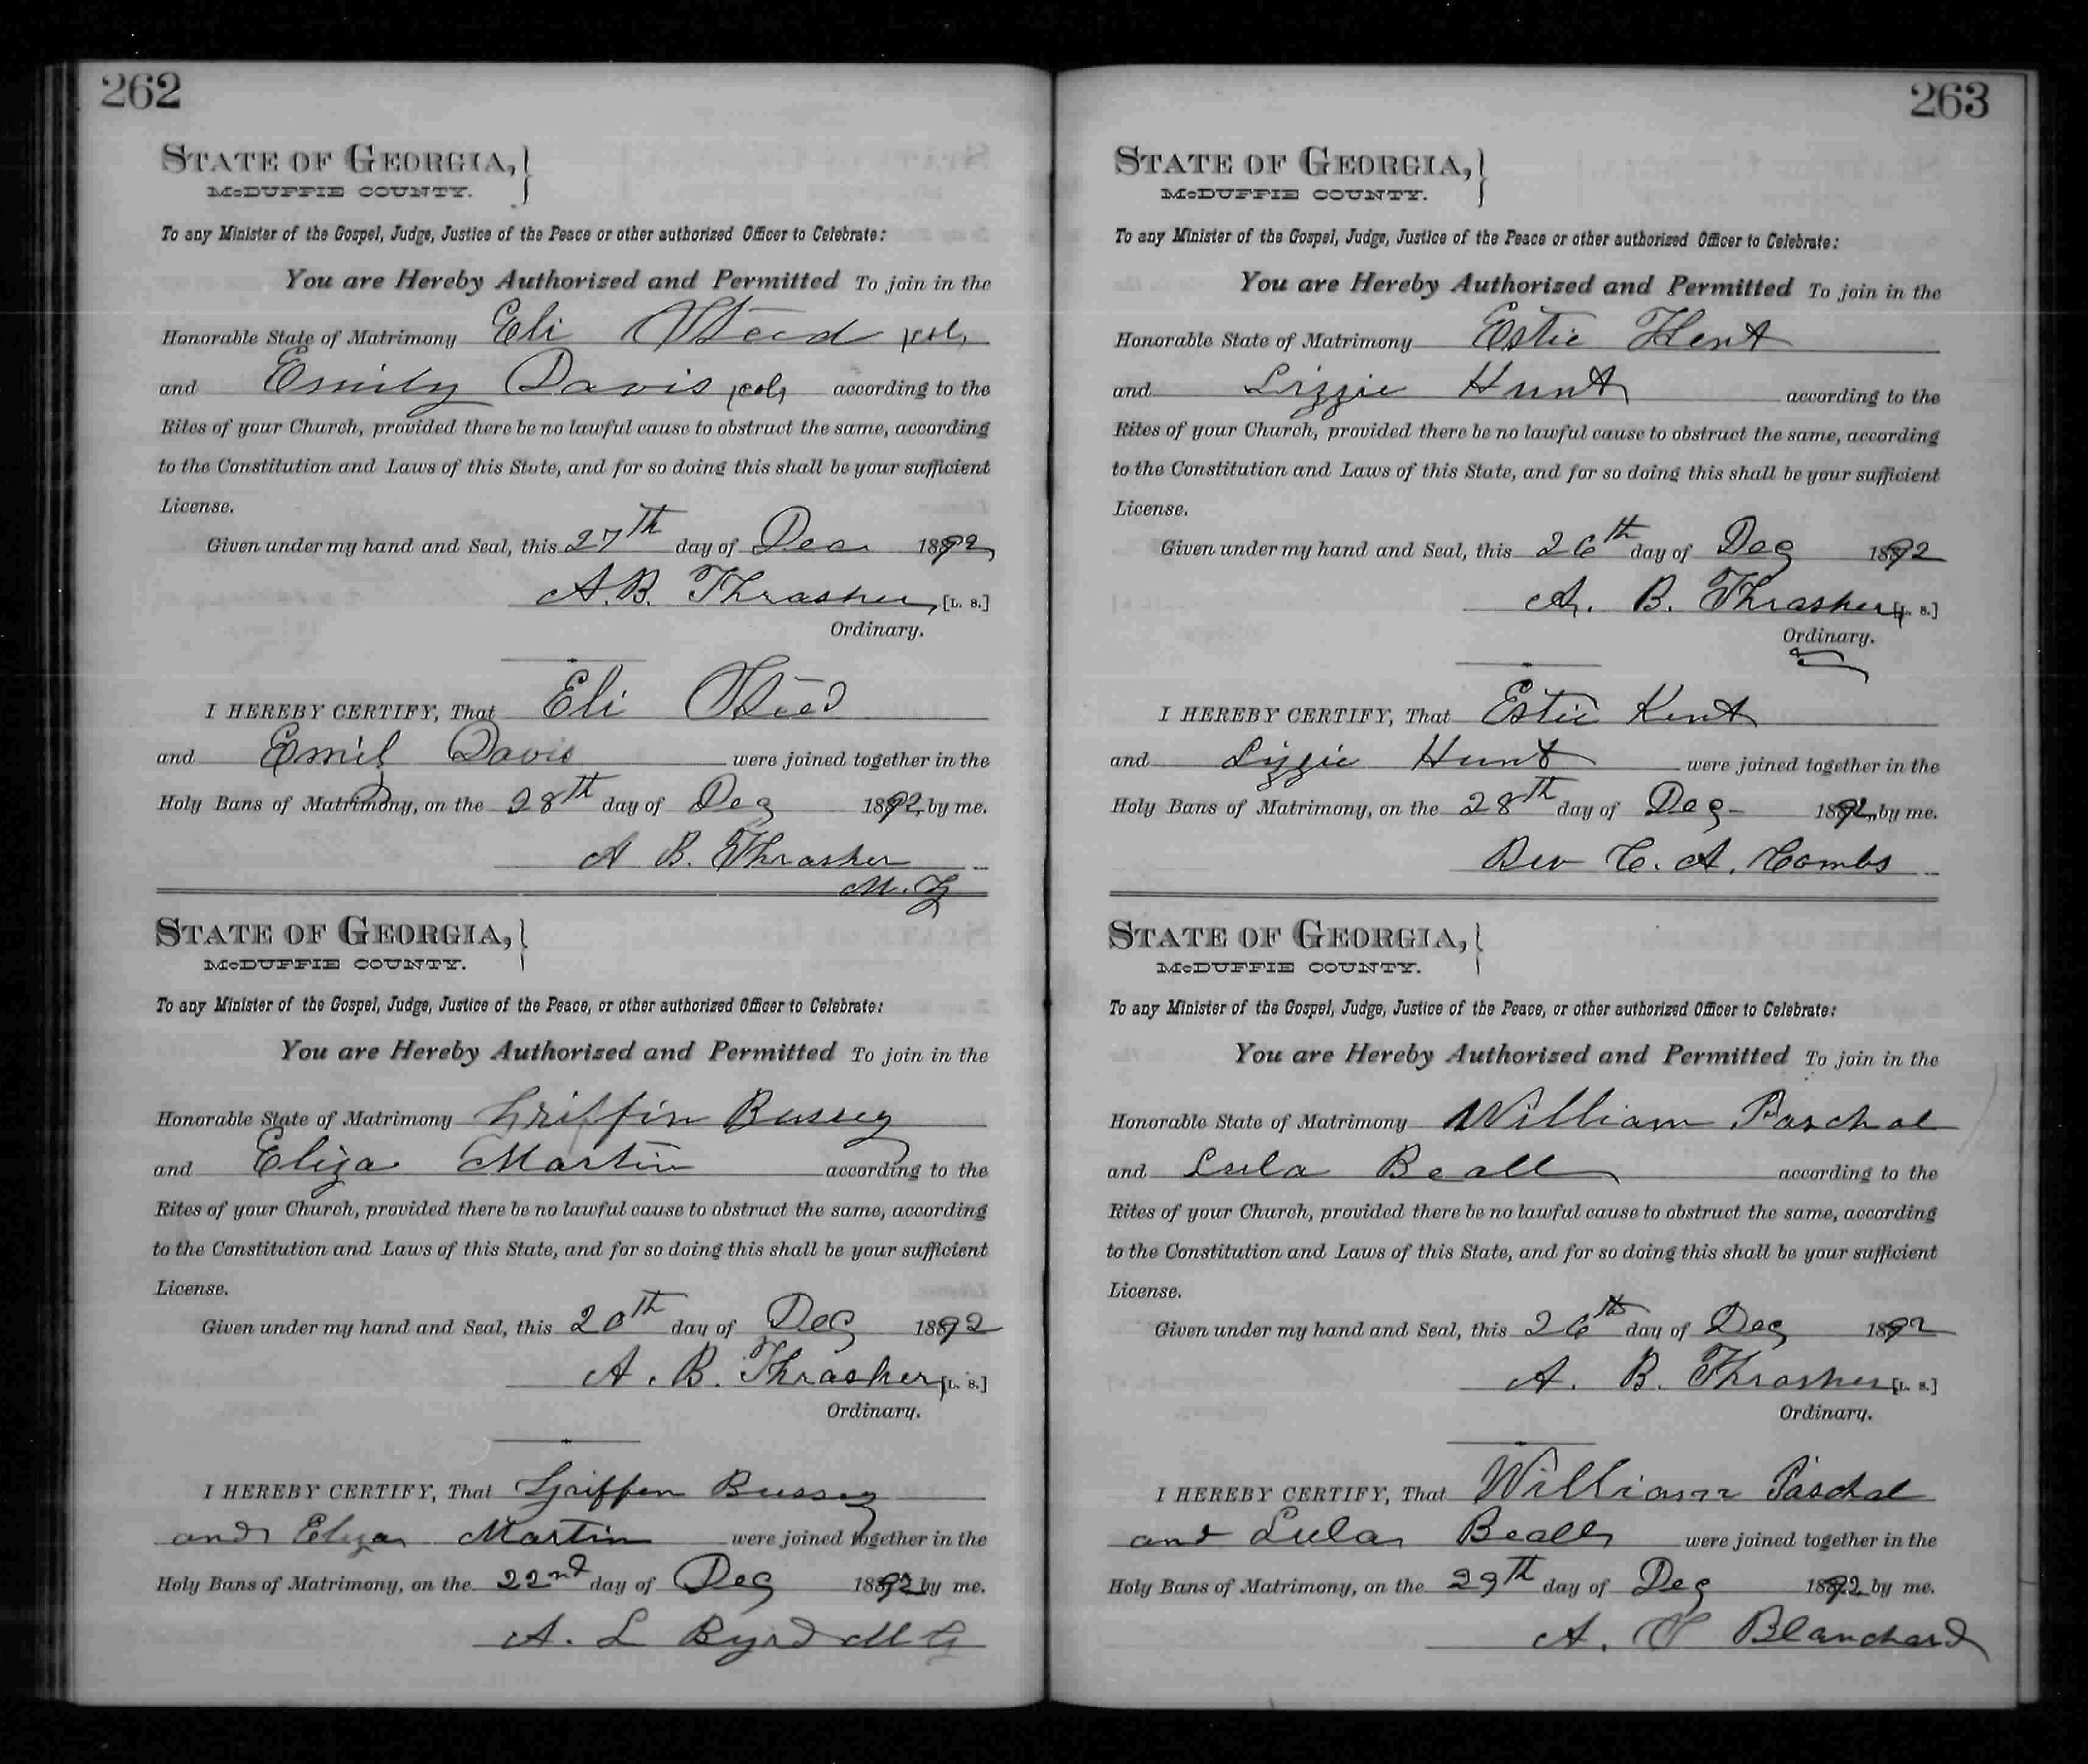 262
STATE OF GEORGIA,
McDUFFIE COUNTY.
To any Minister of the Gospel, Judge, Justice of the Peace or other authorized Officer to Celebrate:
You are Hereby Authorized and Permitted To join in the
Honorable State of Matrimony Eli Steed (col)
and Emily Davis (col) according to the
Rites of your Church, provided there be no lawful cause to obstruct the same, according
to the Constitution and Laws of this State, and for so doing this shall be your sufficient
License.
Given under my hand and Seal, this 27th day of Dec 1892
A. B. Thrasher [L. S.]
Ordinary.
I HEREBY CERTIFY, That Eli Steed
and Emily Davis were joined together in the
Holy Bans of Matrimony, on the 28th day of Dec 1892, by me.
A B. Thrasher
M. G
STATE OF GEORGIA,
McDUFFIE COUNTY.
To any Minister of the Gospel, Judge, Justice of the Peace, or other authorized Officer to Celebrate:
You are Hereby Authorized and Permitted To join in the
Honorable State of Matrimony Griffin Bussey
and Eliza Martin according to the
Rites of your Church, provided there be no lawful cause to obstruct the same, according
to the Constitution and Laws of this State, and for so doing this shall be your sufficient
License.
Given under my hand and Seal, this 20th day of Dec 1892
A. B. Thrasher [L. S.]
Ordinary.
I HEREBY CERTIFY, That Griffen Bussey
and Eliza Martin were joined together in the
Holy Bans of Matrimony, on the 22nd day of Dec 1892 by me.
A. L Byrd M G
263
STATE OF GEORGIA,
McDUFFIE COUNTY.
To any Minister of the Gospel, Judge, Justice of the Peace or other authorized Officer to Celebrate:
You are Hereby Authorized and Permitted To join in the
Honorable State of Matrimony Estie Kent
and Lizzie Hunt according to the
Rites of your Church, provided there be no lawful cause to obstruct the same, according
to the Constitution and Laws of this State, and for so doing this shall be your sufficient
License.
Given under my hand and Seal, this 26th day of Dec 1892
A. B. Thrasher [L. S.]
Ordinary.
I HEREBY CERTIFY, That Estie Kent
and Lizzie Hunt were joined together in the
Holy Bans of Matrimony, on the 28th day of Dec 1892, by me.
Rev C. A. Combs
STATE OF GEORGIA,
McDUFFIE COUNTY.
To any Minister of the Gospel, Judge, Justice of the Peace, or other authorized Officer to Celebrate:
You are Hereby Authorized and Permitted To join in the
Honorable State of Matrimony William Paschal
and Lula Beall according to the
Rites of your Church, provided there be no lawful cause to obstruct the same, according
to the Constitution and Laws of this State, and for so doing this shall be your sufficient
License.
Given under my hand and Seal, this 26th day of Dec 1892
A. B. Thrasher [L. S.]
Ordinary.
I HEREBY CERTIFY, That William Paschal
and Lula Beall were joined together in the
Holy Bans of Matrimony, on the 29th day of Dec 1892 by me.
A. Blanchard